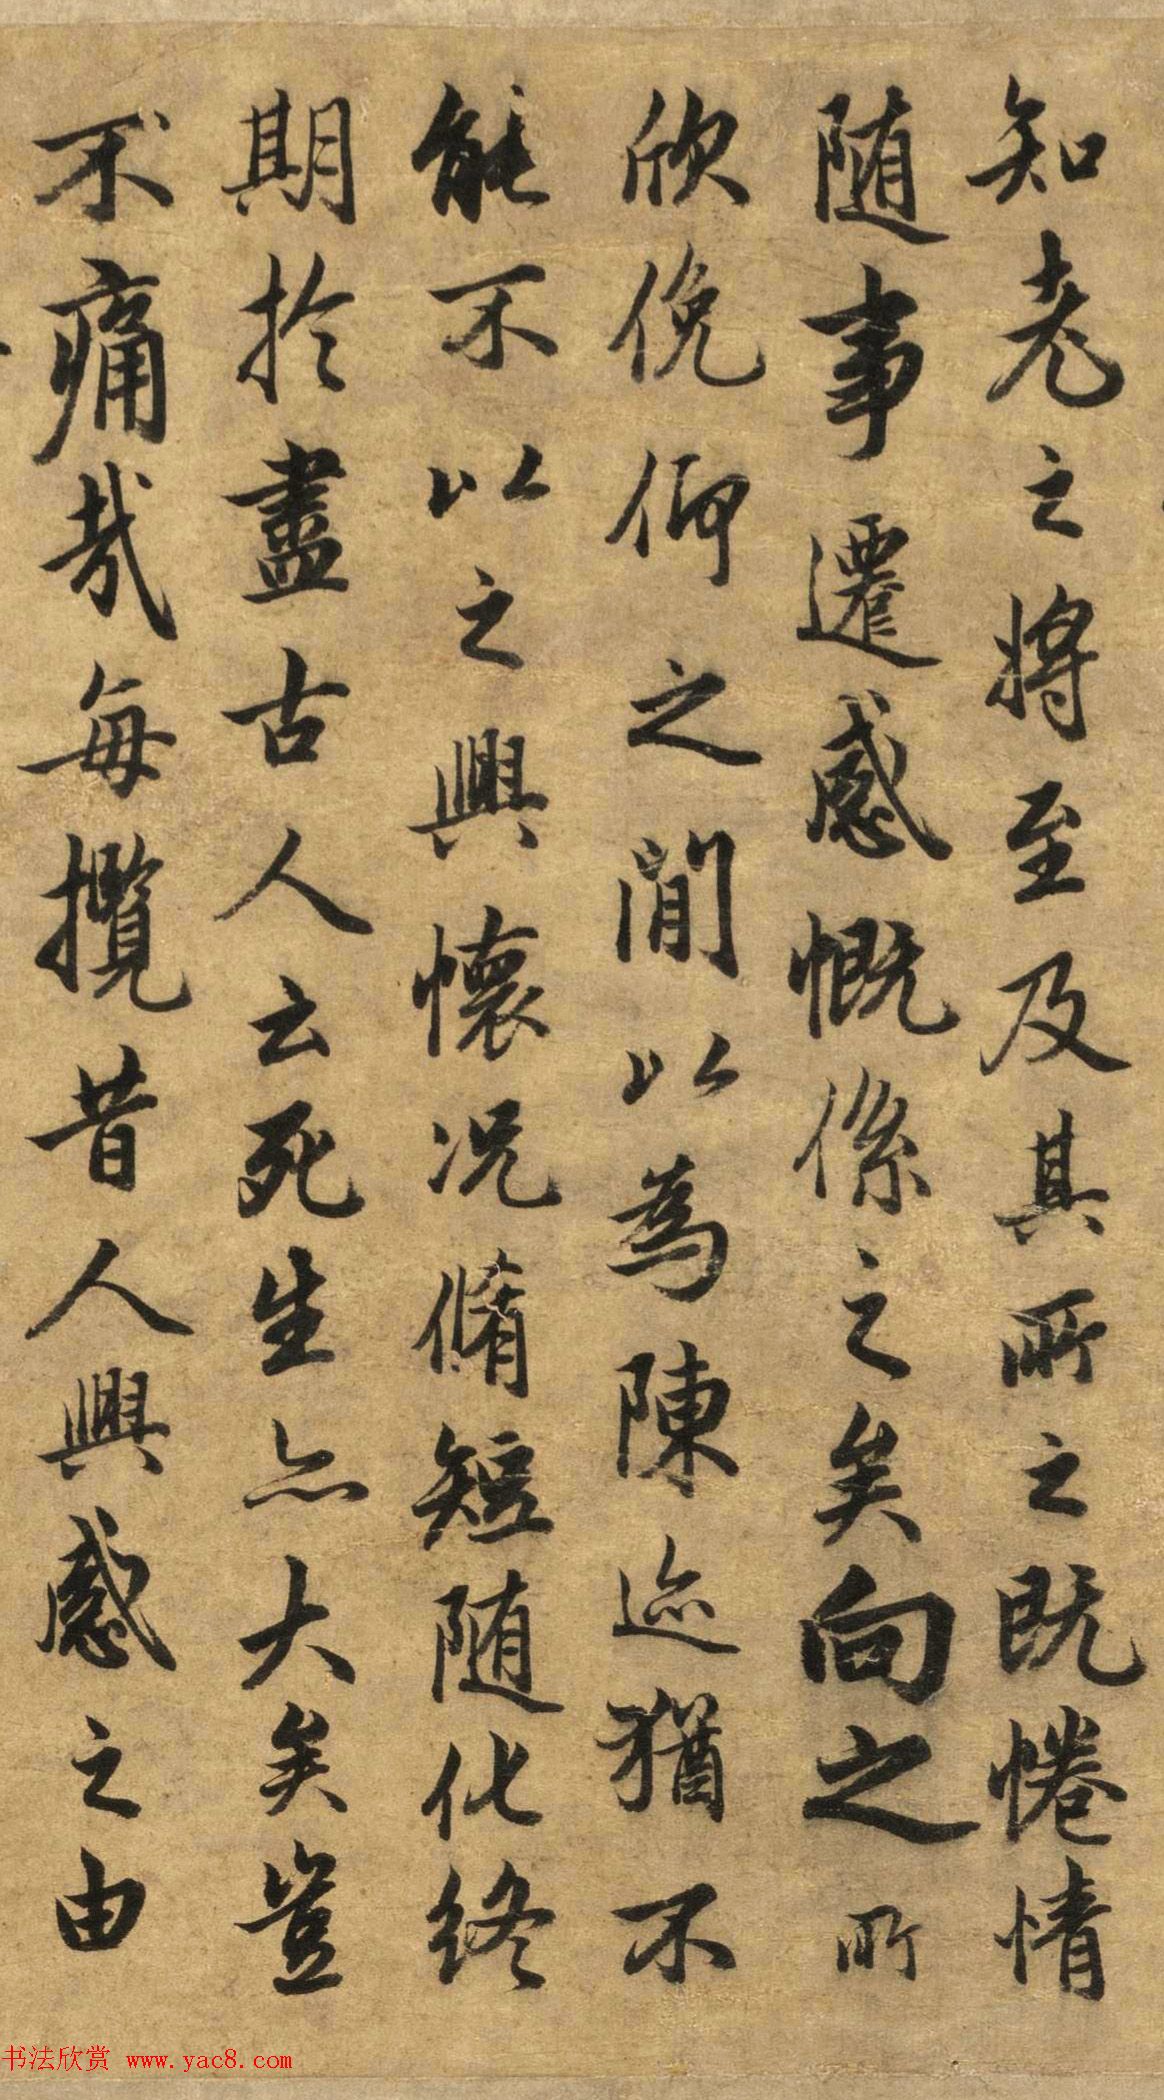 知老之將至及其所之既惓情
随事遷感慨係之矣向之所
欣俛仰之閒以為陳迹猶不
能不以之興懷况脩短随化終
期於盡古人云死生亦大矣豈
不痛哉每攬昔人興感之由
书法欣赏 www.yac8.com